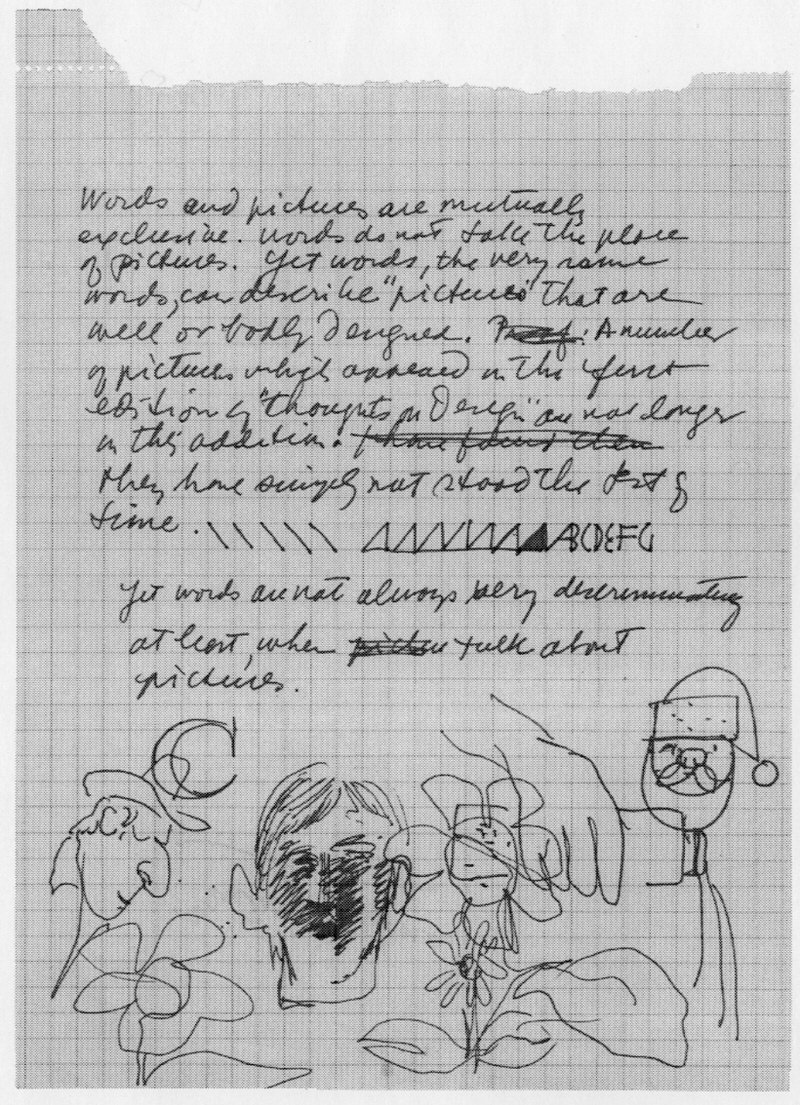 Words and pictures are mutually
exclusive. words do not take the place
of pictures. Yet words, the very same
words, can describe "pictures" that are
well or badly designed. Proof: A number
of pictures which appeared in the first
edition of "Thoughts on Design" are no longer
in this addition. I have found them
they have simply not stood the test of
time.
ABCDEFG
Yet words are not always very discriminating
at least, when talk about
pictures.